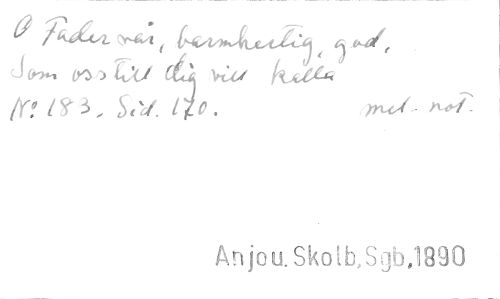 O Fader vår, barmhertig, god,
Som oss till dig vill kalla
No: 183. Sid. 170. mel. not.
Anjou. Skolb, Sgb, 1890